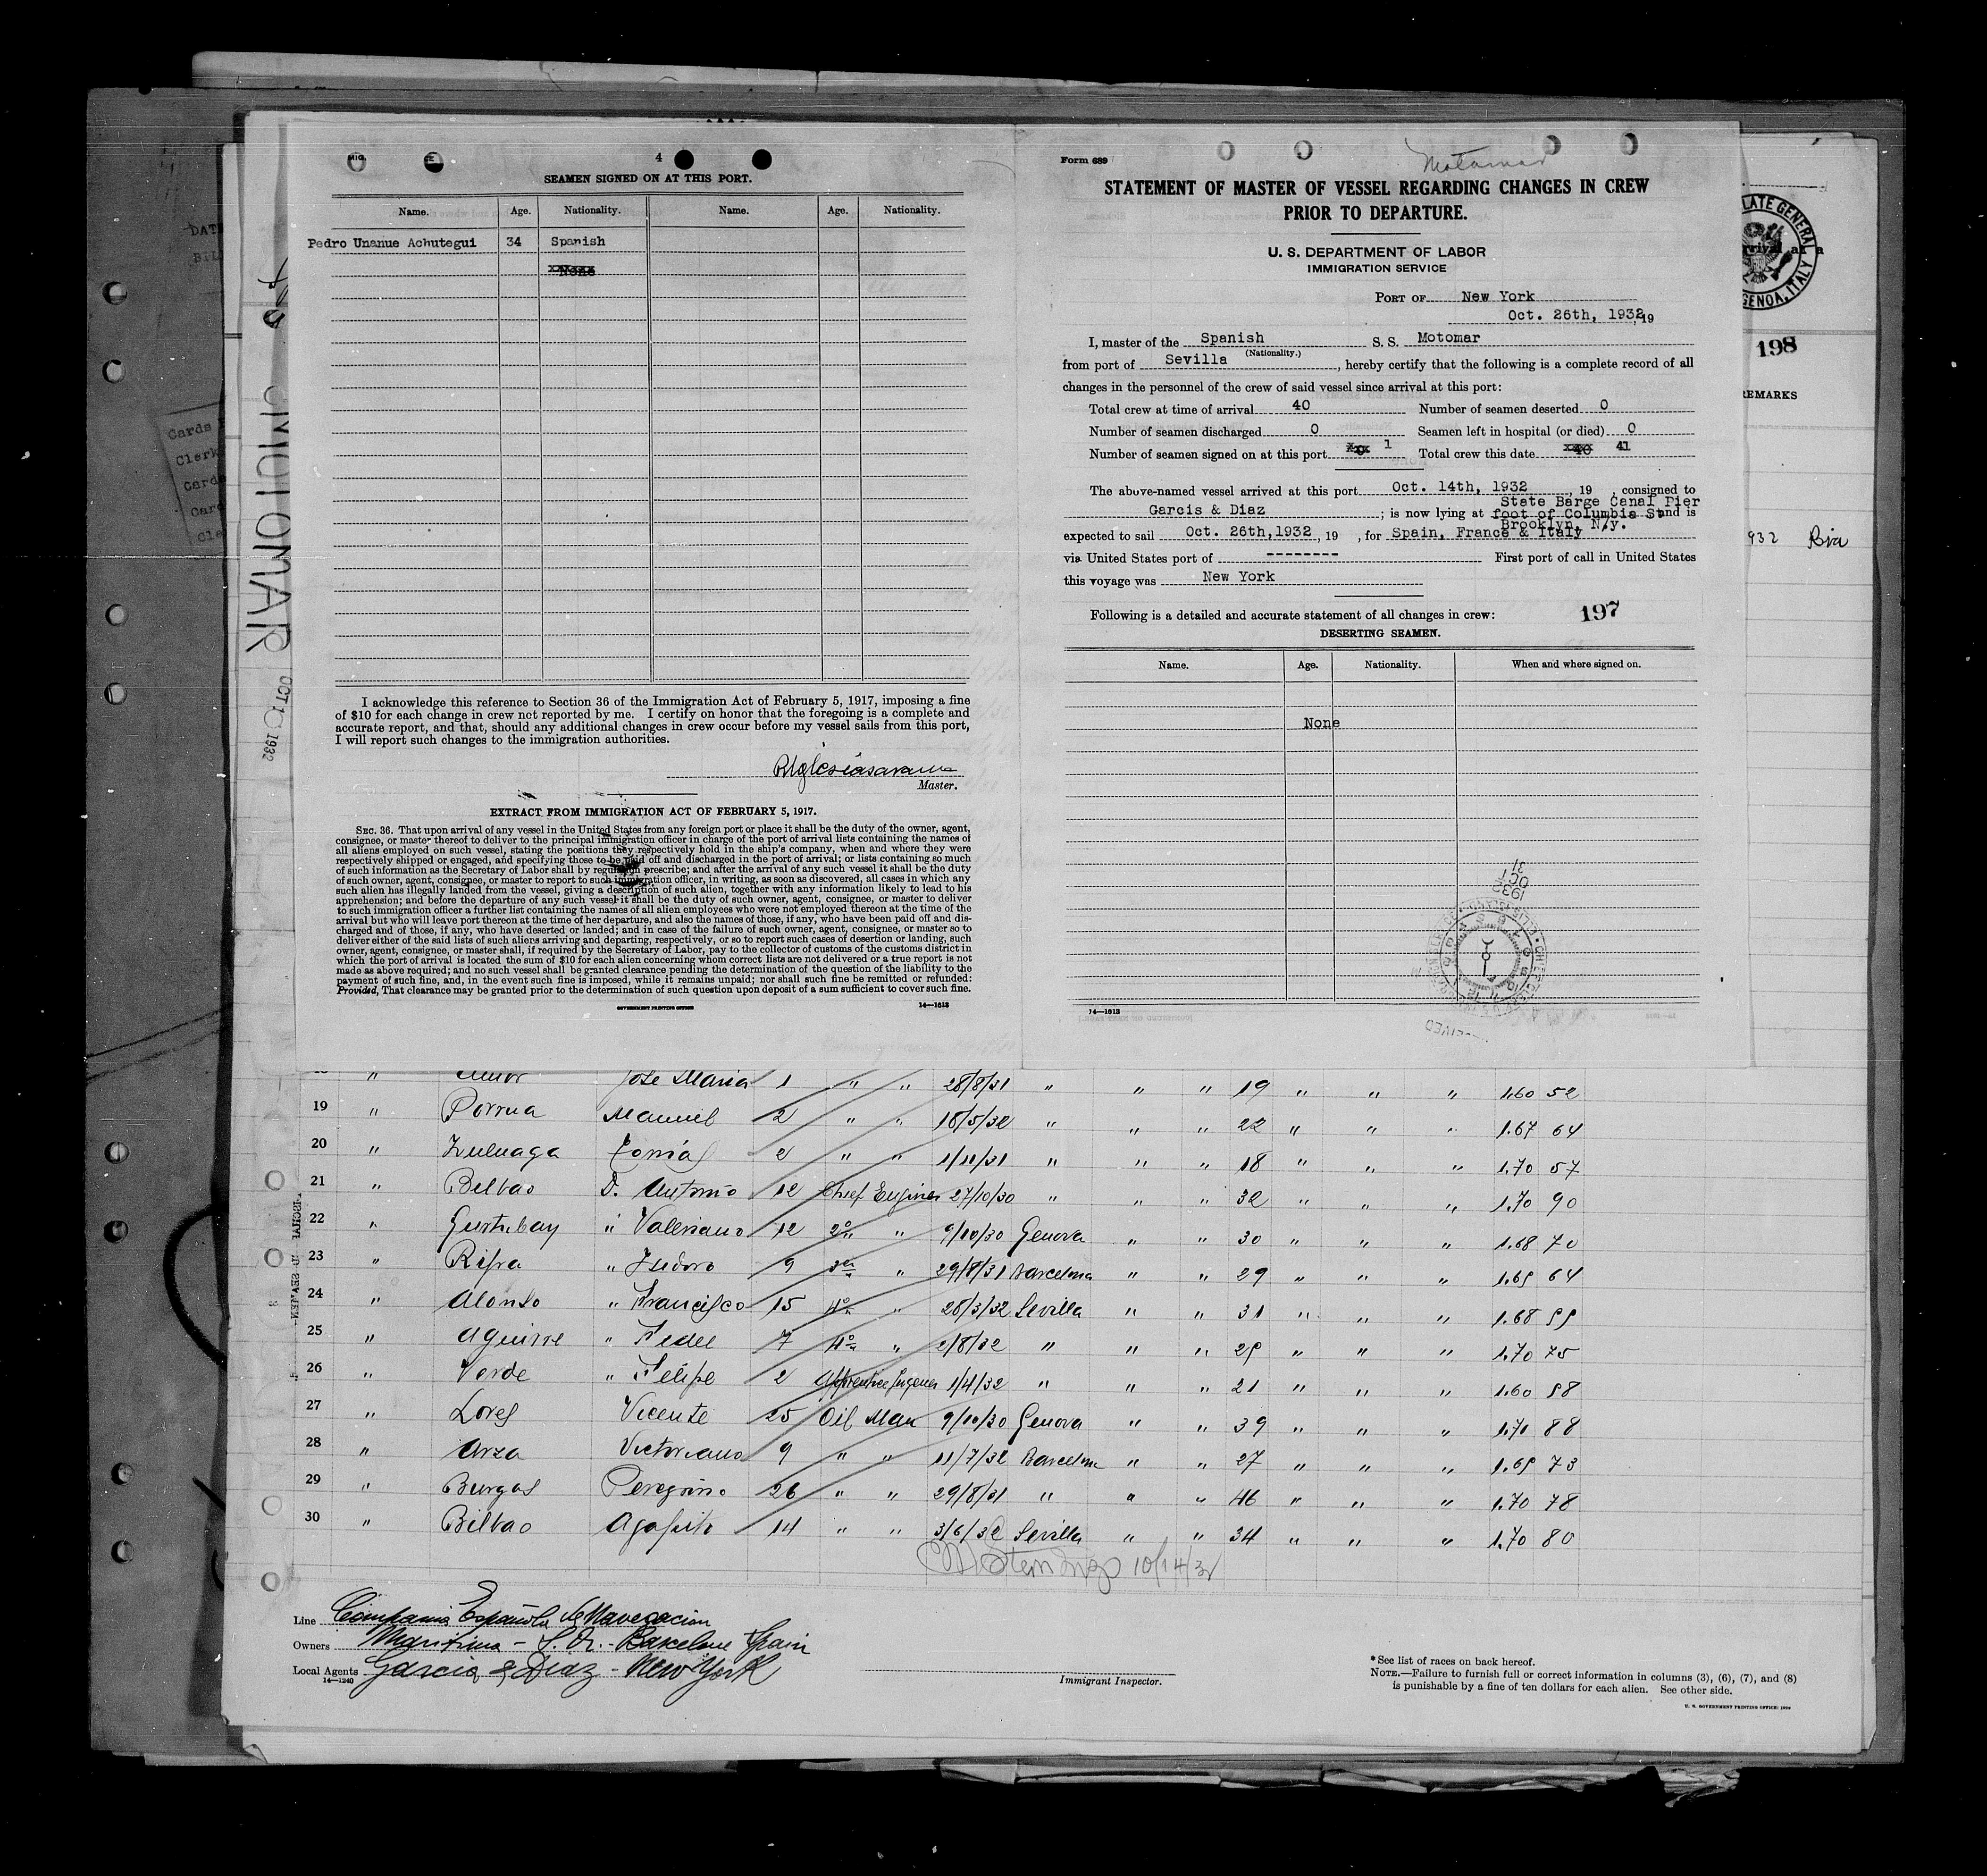 4
SEAMEN SIGNED ON AT THIS PORT.
Name. Age. Nationality. Name. Age. Nationality.
Pedro Unanue Achutegui 34 Spanish
None
I acknowledge this reference to Section 36 of the Immigration Act of February 5, 1917, imposing a fine
of $10 for each change in crew not reported by me. I certify on honor that the foregoing is a complete and
accurate report, and that, should any additional changes in crew occur before my vessel sails from this port,
I will report such changes to the immigration authorities.
Master.
EXTRACT FROM IMMIGRATION ACT OF FEBRUARY 5, 1917.
SEC. 36. That upon arrival of any vessel in the United States from any foreign port or place it shall be the duty of the owner, agent,
consignee, or master thereof to deliver to the principal immigration officer in charge of the port of arrival lists containing the names of
all aliens employed on such vessel, stating the positions they respectively hold in the ship's company, when and where they were
respectively shipped or engaged, and specifying those to be paid off and discharged in the port of arrival; or lists containing so much
of such information as the Secretary of Labor shall by regulation prescribe; and after the arrival of any such vessel it shall be the duty
of such owner, agent, consignee, or master to report to such immigration officer, in writing, as soon as discovered, all cases in which any
such alien has illegally landed from the vessel, giving a description of such alien, together with any information likely to lead to his
apprehension; and before the departure of any such vessel it shall be the duty of such owner, agent, consignee, or master to deliver
to such immigration officer a further list containing the names of all alien employees who were not employed thereon at the time of the
arrival but who will leave port thereon at the time of her departure, and also the names of those, if any, who have been paid off and dis-
charged and of those, if any, who have deserted or landed; and in case of the failure of such owner, agent, consignee, or master so to
deliver either of the said lists of such aliens arriving and departing, respectively, or so to report such cases of desertion or landing, such
owner, agent, consignee, or master shall, if required by the Secretary of Labor, pay to the collector of customs of the customs district in
which the port of arrival is located the sum of $10 for each alien concerning whom correct lists are not delivered or a true report is not
made as above required; and no such vessel shall be granted clearance pending the determination of the question of the liability to the
payment of such fine, and, in the event such fine is imposed, while it remains unpaid; nor shall such fine be remitted or refunded:
Provided, That clearance may be granted prior to the determination of such question upon deposit of a sum sufficient to cover such fine.
GOVERNMENT PRINTING OFFICE 14—1613
Form 689
Motomar
STATEMENT OF MASTER OF VESSEL REGARDING CHANGES IN CREW
PRIOR TO DEPARTURE.
U. S. DEPARTMENT OF LABOR
IMMIGRATION SERVICE
PORT OF New York
Oct. 26th, 1932, 19
I, master of the Spanish S. S. Motomar
(Nationality.)
from port of Sevilla, hereby certify that the following is a complete record of all
changes in the personnel of the crew of said vessel since arrival at this port:
Total crew at time of arrival 40 Number of seamen deserted 0
Number of seamen discharged 0 Seamen left in hospital (or died) 0
Number of seamen signed on at this port 1 Total crew this date 40 41
The above-named vessel arrived at this port Oct. 14th, 1932, 19 , consigned to
State Barge Canal Pier
Garcis & Diaz ; is now lying at foot of Columbia St and is
Brooklyn, N.y.
expected to sail Oct. 26th,1932, 19 , for Spain, France & Italy
via United States port of -------- First port of call in United States
this voyage was New York
Following is a detailed and accurate statement of all changes in crew: 197
DESERTING SEAMEN.
Name. Age. Nationality. When and where signed on.
None
1932
OCT
31
14—1613
GENOA, ITALY
198
REMARKS
932
MOTOMAR
OCT 1932
Jose Maria 1 " " 28/8/31 " " " 19 " " " 1.60 52
19 " Porrua Manuel 2 " " 18/5/32 " " " 22 " " " 1.67 64
20 " Zuluaga Tomás 2 " " 1/11/31 " " " 18 " " " 1.70 57
21 " Bilbao D. Antonio 12 Chief Engineer 27/10/30 " " " 32 " " " 1.70 90
22 " " Valeriano 12 2º " 9/10/30 Genova " " 30 " " " 1.68 70
23 " Ripa " Isidoro 9 3er " 29/8/31 Barcelona " " 29 " " " 1.65 64
24 " Alonso " Francisco 15 4º " 28/3/32 Sevilla " " 31 " " " 1.68
25 " Aguirre " Fidel 7 4º " 2/8/32 " " " " " " 1.70 75
26 " Verde " Felipe 2 Apprentice 1/4/32 " " " 21 " " " 1.60
27 " Lores Vicente 25 Oil Man 9/10/30 Genova " " 39 " " " 1.70 88
28 " Arza Victoriano 9 " " 11/7/32 Barcelona " " 27 " " " 1.65 73
29 " Burgos Peregrino 26 " " 29/8/31 " " " 46 " " " 1.70 78
30 " Bilbao Agapito 14 " " 3/6/32 Sevilla " " 34 " " " 1.70 80
10/14/32
Line Compania Española de Navegacion
Owners Maritima - S. A. - Barcelona Spain
Local Agents Garcia & Diaz - New York
14—1240
Immigrant Inspector.
* See list of races on back hereof.
NOTE.—Failure to furnish full or correct information in columns (3), (6), (7), and (8)
is punishable by a fine of ten dollars for each alien. See other side.